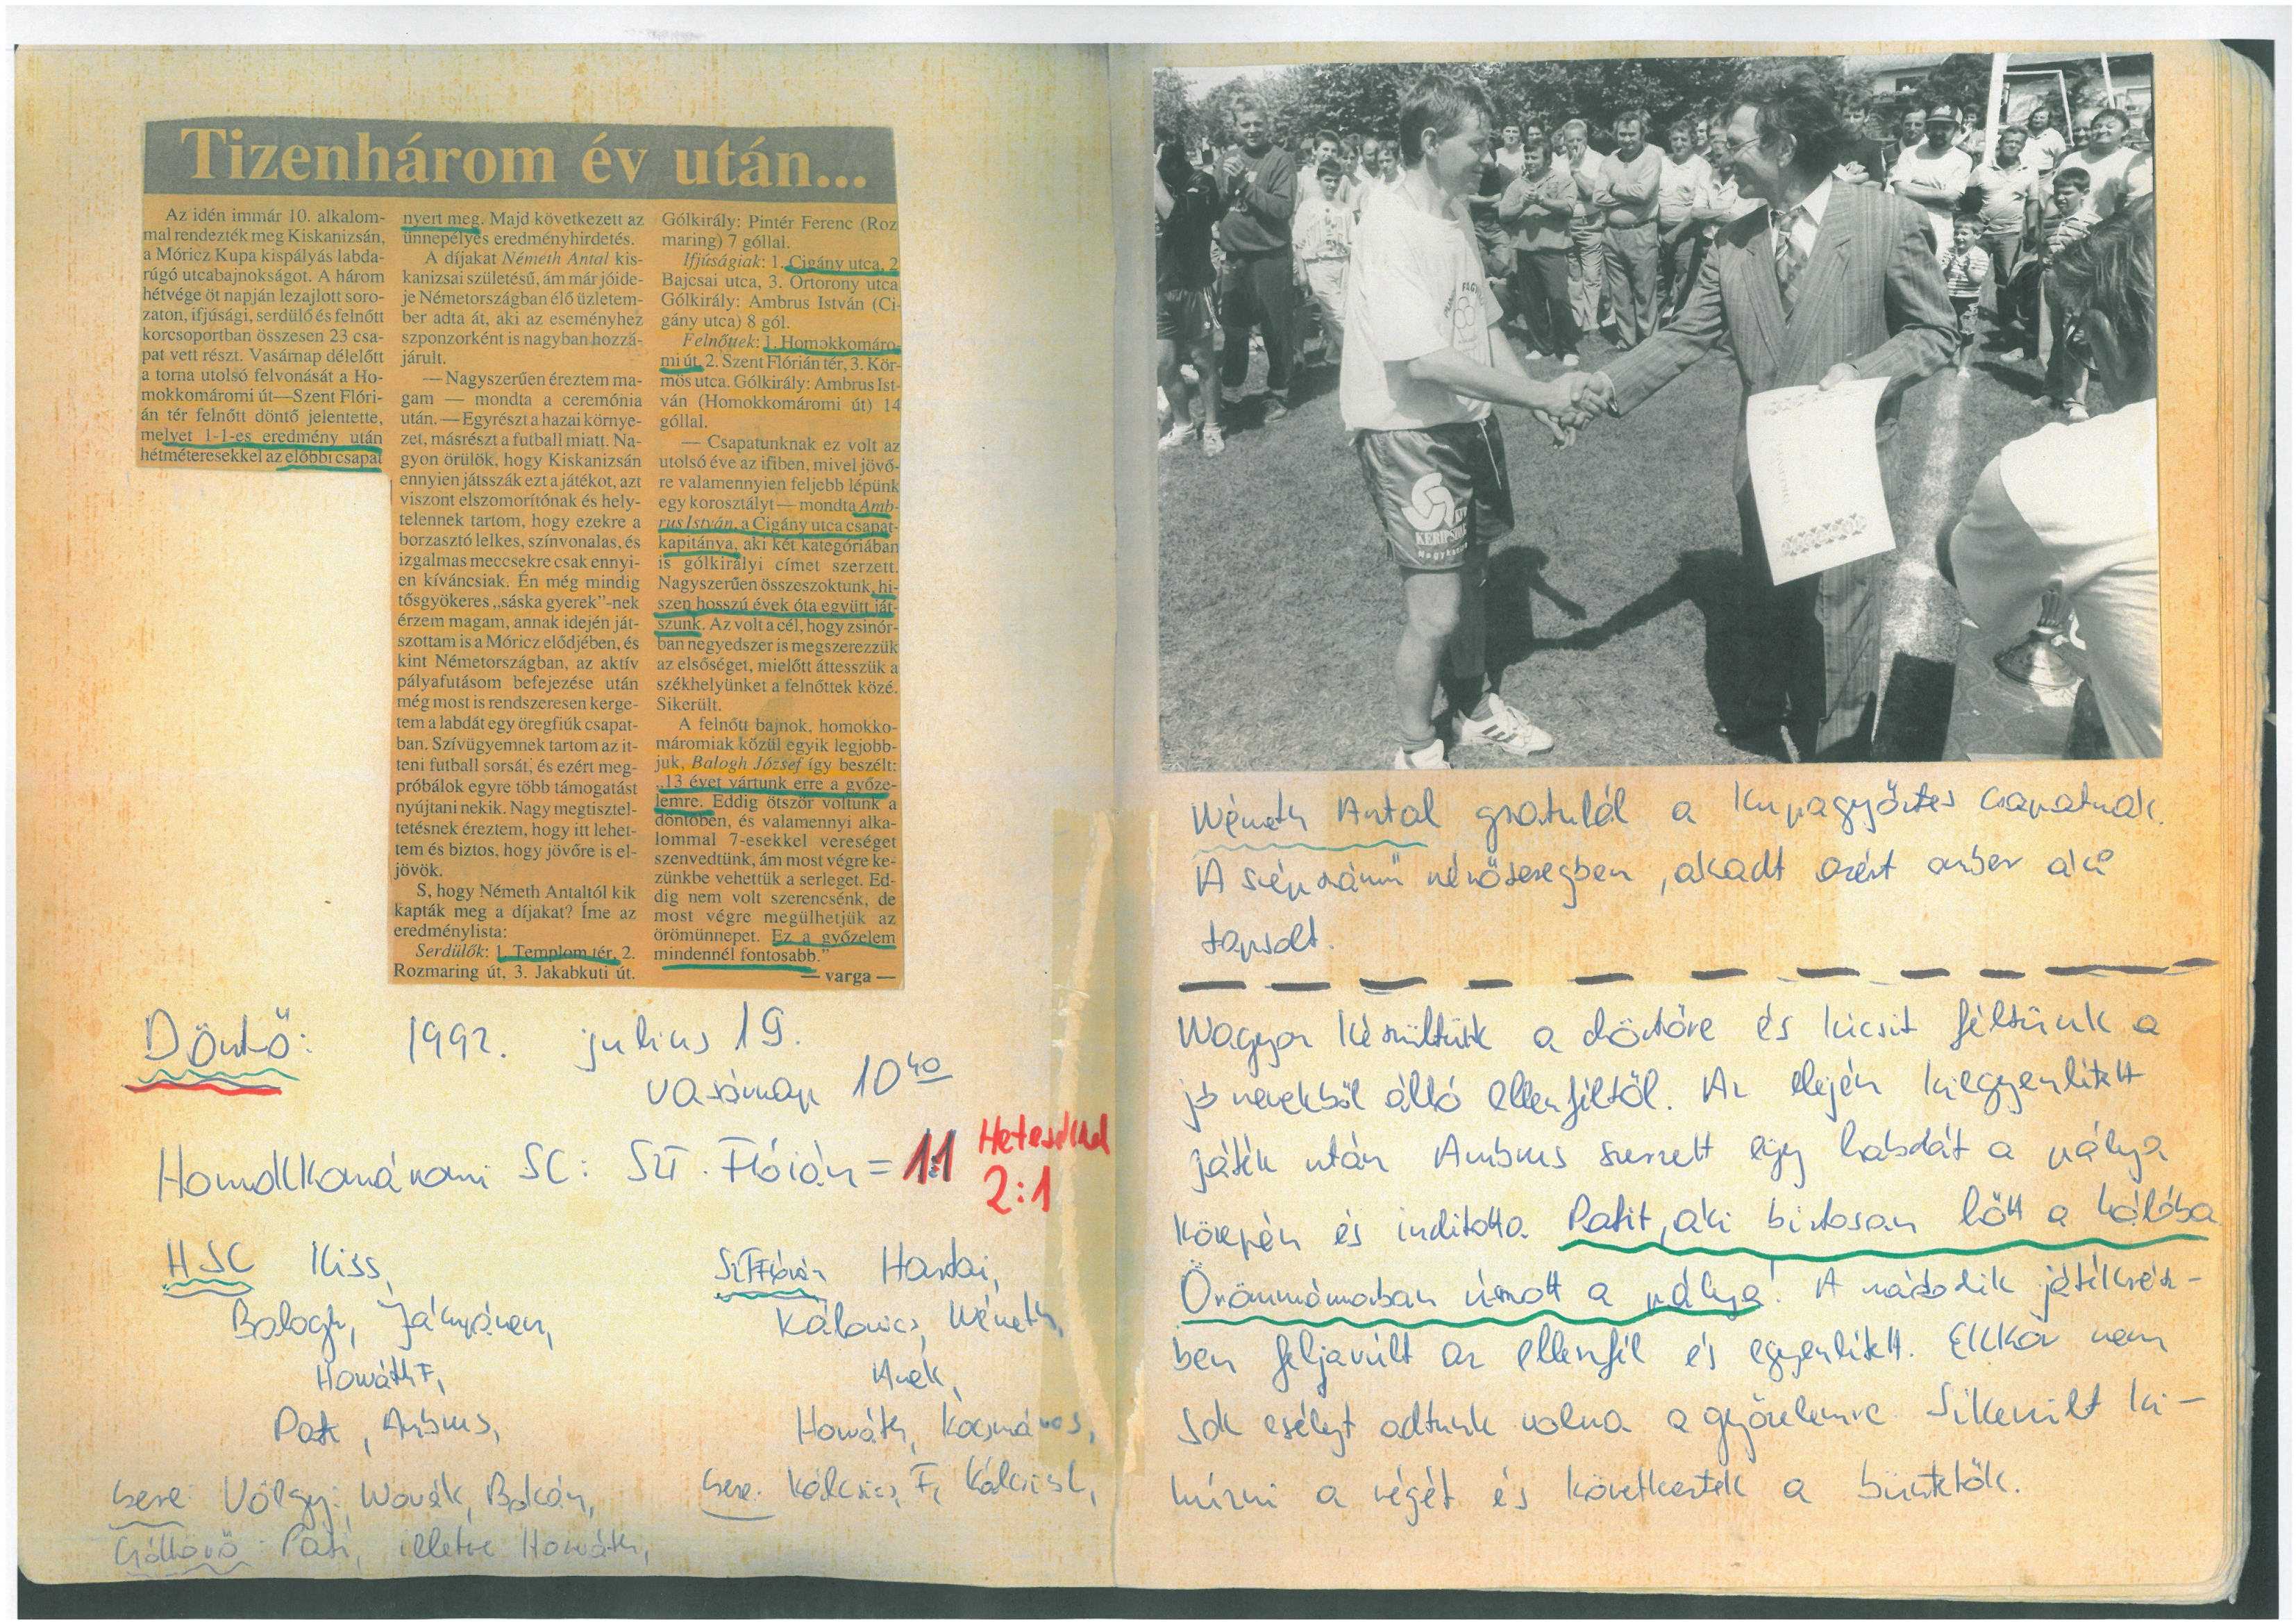 Tizenhárom év után...
Az idén immár 10. alkalom-
mal rendezték meg Kiskanizsán,
a Móricz Kupa kispályás labda-
rúgó utcabajnokságot. A három
hétvége öt napján lezajlott soro-
zaton, ifjúsági, serdülő és felnőtt
korcsoportban összesen 23 csa-
pat vett részt. Vasárnap délelőtt
a torna utolsó felvonását a Ho-
mokkomáromi út—Szent Flóri-
án tér felnőtt döntő jelentette,
melyet 1-1-es eredmény után
hétméteresekkel az előbbi csapat
nyert meg. Majd következett az
ünnepélyes eredményhirdetés.
A díjakat Németh Antal kis-
kanizsai születésű, ám már jóide-
je Németországban élő üzletem-
ber adta át, aki az eseményhez
szponzorként is nagyban hozzá-
járult.
— Nagyszerűen éreztem ma-
gam — mondta a ceremónia
után. — Egyrészt a hazai környe-
zet, másrészt a futball miatt. Na-
gyon örülök, hogy Kiskanizsán
ennyien játsszák ezt a játékot, azt
viszont elszomorítónak és hely-
telennek tartom, hogy ezekre a
borzasztó lelkes, színvonalas, és
izgalmas meccsekre csak ennyi-
en kíváncsiak. Én még mindig
tősgyökeres „sáska gyerek”-nek
érzem magam, annak idején ját-
szottam is a Móricz elődjében, és
kint Németországban, az aktív
pályafutásom befejezése után
még most is rendszeresen kerge-
tem a labdát egy öregfiúk csapat-
ban. Szívügyemnek tartom az it-
teni futball sorsát, és ezért meg-
próbálok egyre több támogatást
nyújtani nekik. Nagy megtisztel-
tetésnek éreztem, hogy itt lehet-
tem és biztos, hogy jövőre is el-
jövök.
S, hogy Németh Antaltól kik
kapták meg a díjakat? Íme az
eredménylista:
Serdülők: 1. Templom tér, 2.
Rozmaring út, 3. Jakabkuti út.
Gólkirály: Pintér Ferenc (Roz
maring) 7 góllal.
Ifjúságiak: 1. Cigány utca, 2
Bajcsai utca, 3. Örtorony utca
Gólkirály: Ambrus István (Ci-
gány utca) 8 gól.
Felnőttek: 1. Homokkomáro-
mi út, 2. Szent Flórián tér, 3. Kör-
mös utca. Gólkirály: Ambrus Ist-
ván (Homokkomáromi út) 14
góllal.
— Csapatunknak ez volt az
utolsó éve az ifiben, mivel jövő-
re valamennyien feljebb lépünk
egy korosztályt — mondta Amb-
rus István, a Cigány utca csapat-
kapitánya, aki két kategóriában
is gólkirályi címet szerzett.
Nagyszerűen összeszoktunk, hi-
szen hosszú évek óta együtt ját-
szunk. Az volt a cél, hogy zsinór-
ban negyedszer is megszerezzük
az elsőséget, mielőtt áttesszük a
székhelyünket a felnőttek közé.
Sikerült.
A felnőtt bajnok, homokko-
máromiak közül egyik legjobb-
juk, Balogh József így beszélt:
„13 évet vártunk erre a győze-
lemre. Eddig ötször voltunk a
döntőben, és valamennyi alka-
lommal 7-esekkel vereséget
szenvedtünk, ám most végre ke-
zünkbe vehettük a serleget. Ed-
dig nem volt szerencsénk, de
most végre megülhetjük az
örömünnepet. Ez a győzelem
mindennél fontosabb.”
— varga —
Döntő: 1992. julius 19.
vasárnap 10 40
Homokkomáromi SC: SZT. Flórián = 1:1 Hetesekkel
2:1
HSC Kiss,
Balogh,
Horváth F,
Pati, Ambrus,
csere: Völgyi, Novák,
Góllövő: Pati, illetve Horváth,
SZT Flórián
Németh,
Anek,
Horváth, Kocsmáros,
csere:
KERIPSZ
Németh Antal gratulál a kupagyőztes csapatnak.
A szép számú nézőseregben, akadt azért ember aki
tapsolt.
Nagyon készültünk a döntőre és kicsit féltünk a
jó nevekből álló ellenféltől. Az elején kiegyenlített
játék után Ambrus szerzett egy labdát a pálya
közepén és inditotta Patit, aki biztosan lőtt a hálóba
Örömmámorban úszott a pálya! A második játékrész-
ben feljavult az ellenfél és egyenlített. Ekkor nem
sok esélyt adtunk volna a győzelemre. Sikerült ki-
húzni a végét és következtek a büntetők.